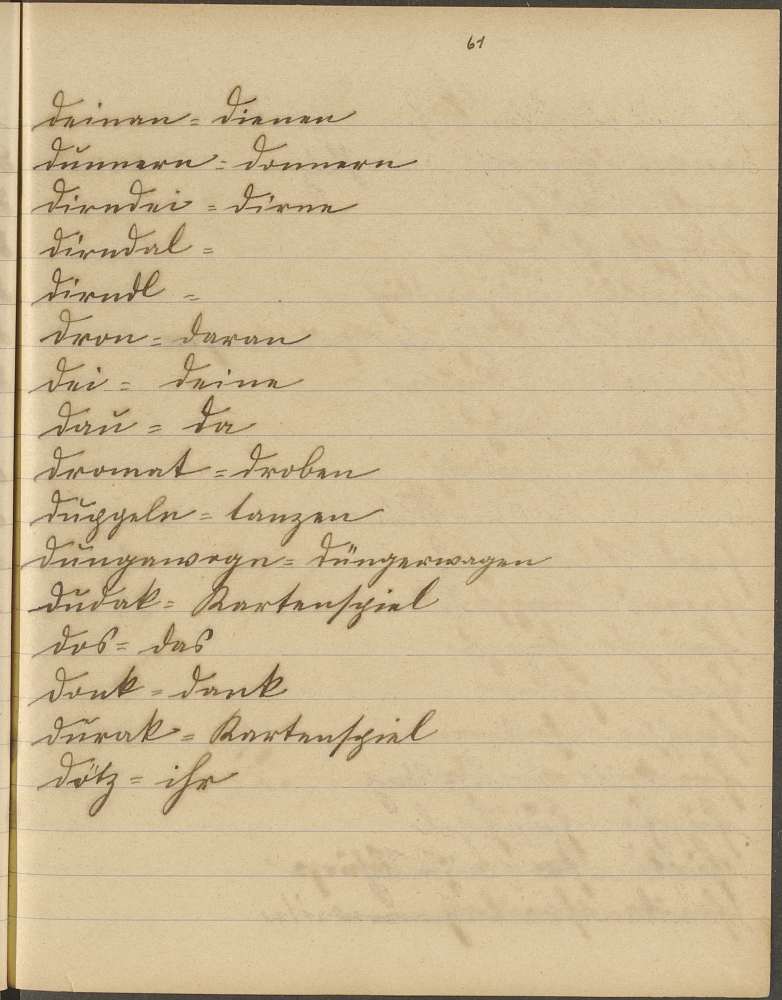 61
deinan = dienen
dunnern = donnern
dirndei = dirne
dirndal =
dirndl =
dron = daran
dei = deine
dau = da
dromat = droben
duppeln = tanzen
dungawogn = düngerwagen
dudak = Kartenspiel
dos = das
donk = dank
durak = Kartenspiel
dötz = ihr